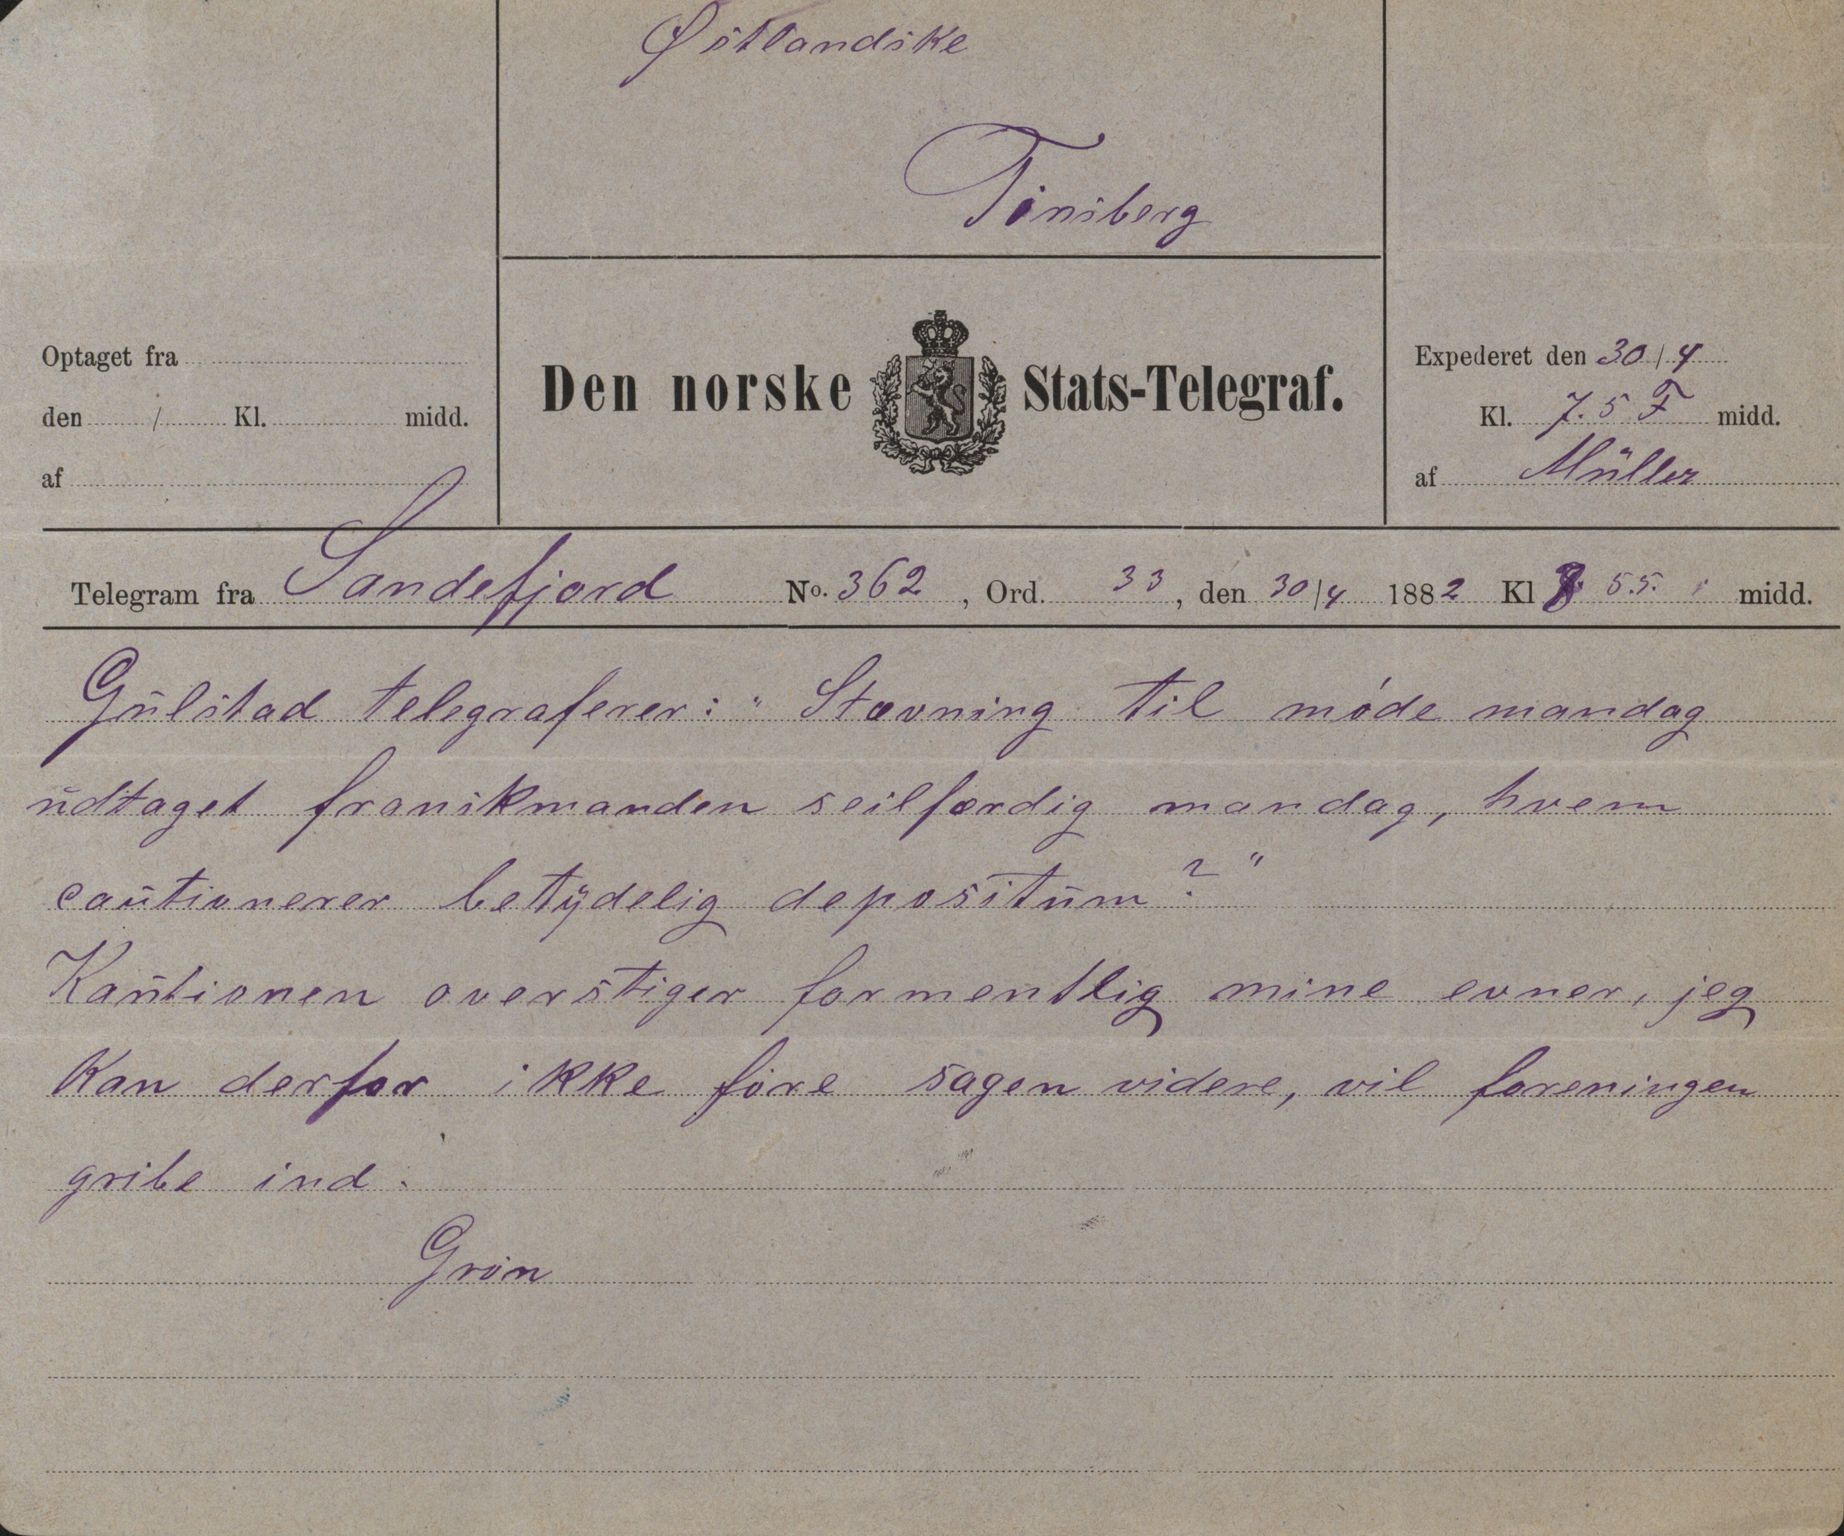 Østlandske
Tönsberg
Optaget fra
den / Kl. midd.
af
Den norske Stats-Telegraf.
Expederet den 30/4
Kl. 7.5 F midd.
af Müller
Telegram fra Sandefjord No. 362, Ord. 33, den 30/4 1882 Kl 55 midd.
Gulstad telegraferer: "Stævning til møde mandag
udtaget franskmanden seilfærdig mandag, hvem
cautionerer betydelig depositum?"
Kautionen overstiger formentlig mine evner, jeg
kan derfor ikke føre sagen videre, vil foreningen
gribe ind.
Grøn